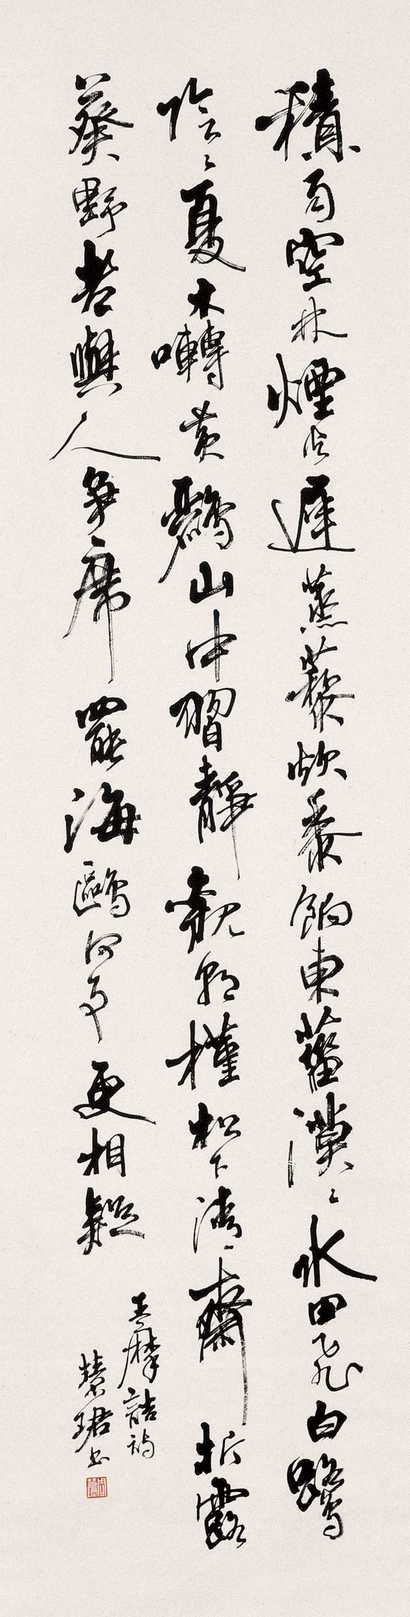 積雨空林煙火遲蒸藜炊黍餉東菑漠漠水田飛白鷺
陰陰夏木囀黃鸝山中習靜觀朝槿松下清齋折露
葵野老與人爭席罷海鷗何事更相疑
王摩詰詩
慧珺書